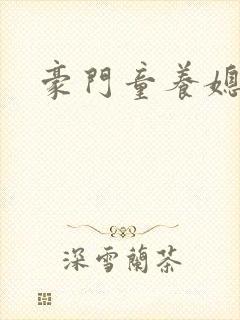 豪門童養媳
深雪蘭茶